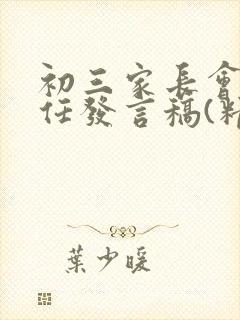 初三家長會
任發言稿(精
葉少暖